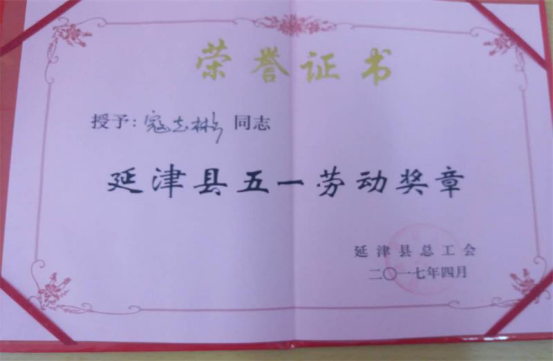 荣誉证书
授予：寇志彬同志
延津县五一劳动奖章
延津县总工会
二〇一七年四月